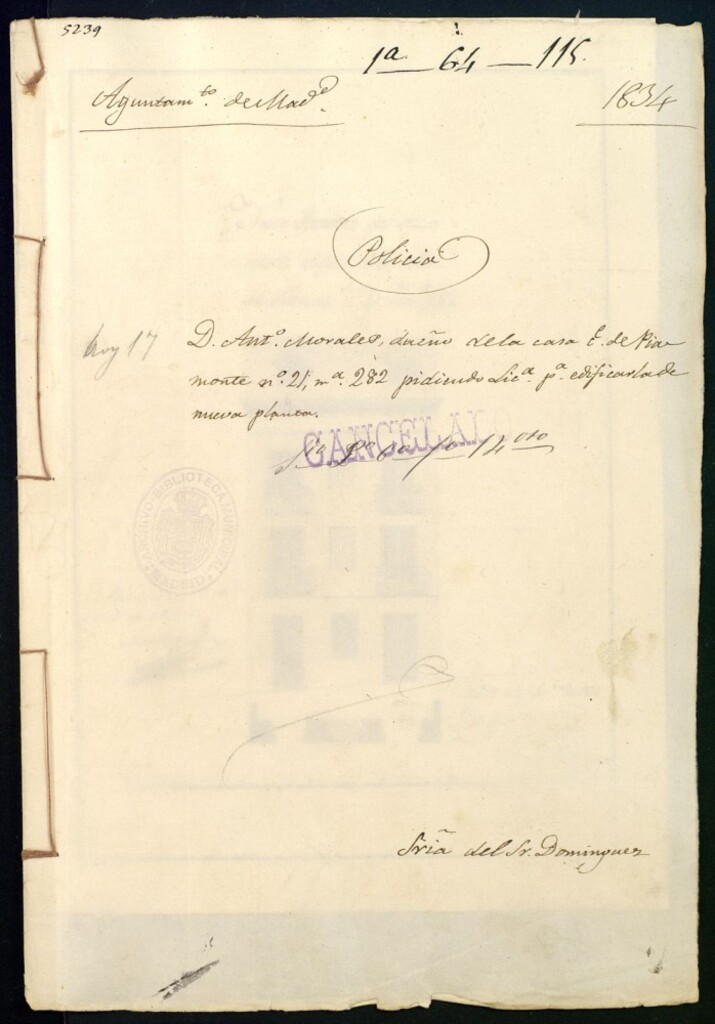 5239
1ª 64 — 115.
Ayuntamto. de Madd.
1834
Policia
hoy 17
D. Anto. Morales, dueño dela casa C. de Pia
monte nº. 21, mª. 282 pidiendo Lica. pª. edificarla de
nueva planta.
CANCELADO
ARCHIVO-BIBLIOTECA MUNICIPAL
MADRID
Sria del Sr. Dominguez